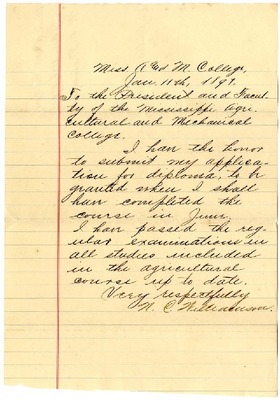 Miss. A & M. College,
Jan. 11th, 1897.
To the President and Facul-
ty of the Mississippi Agri-
cultural and Mechanical
College.
I have the honor
to submit my applica-
tion for diploma, to be
granted when I shall
have completed the
course in June.
I have passed the reg-
ular examinations in
all studies included
in the agricultural
course up to date.
Very respectfully
N. C. Williamson.